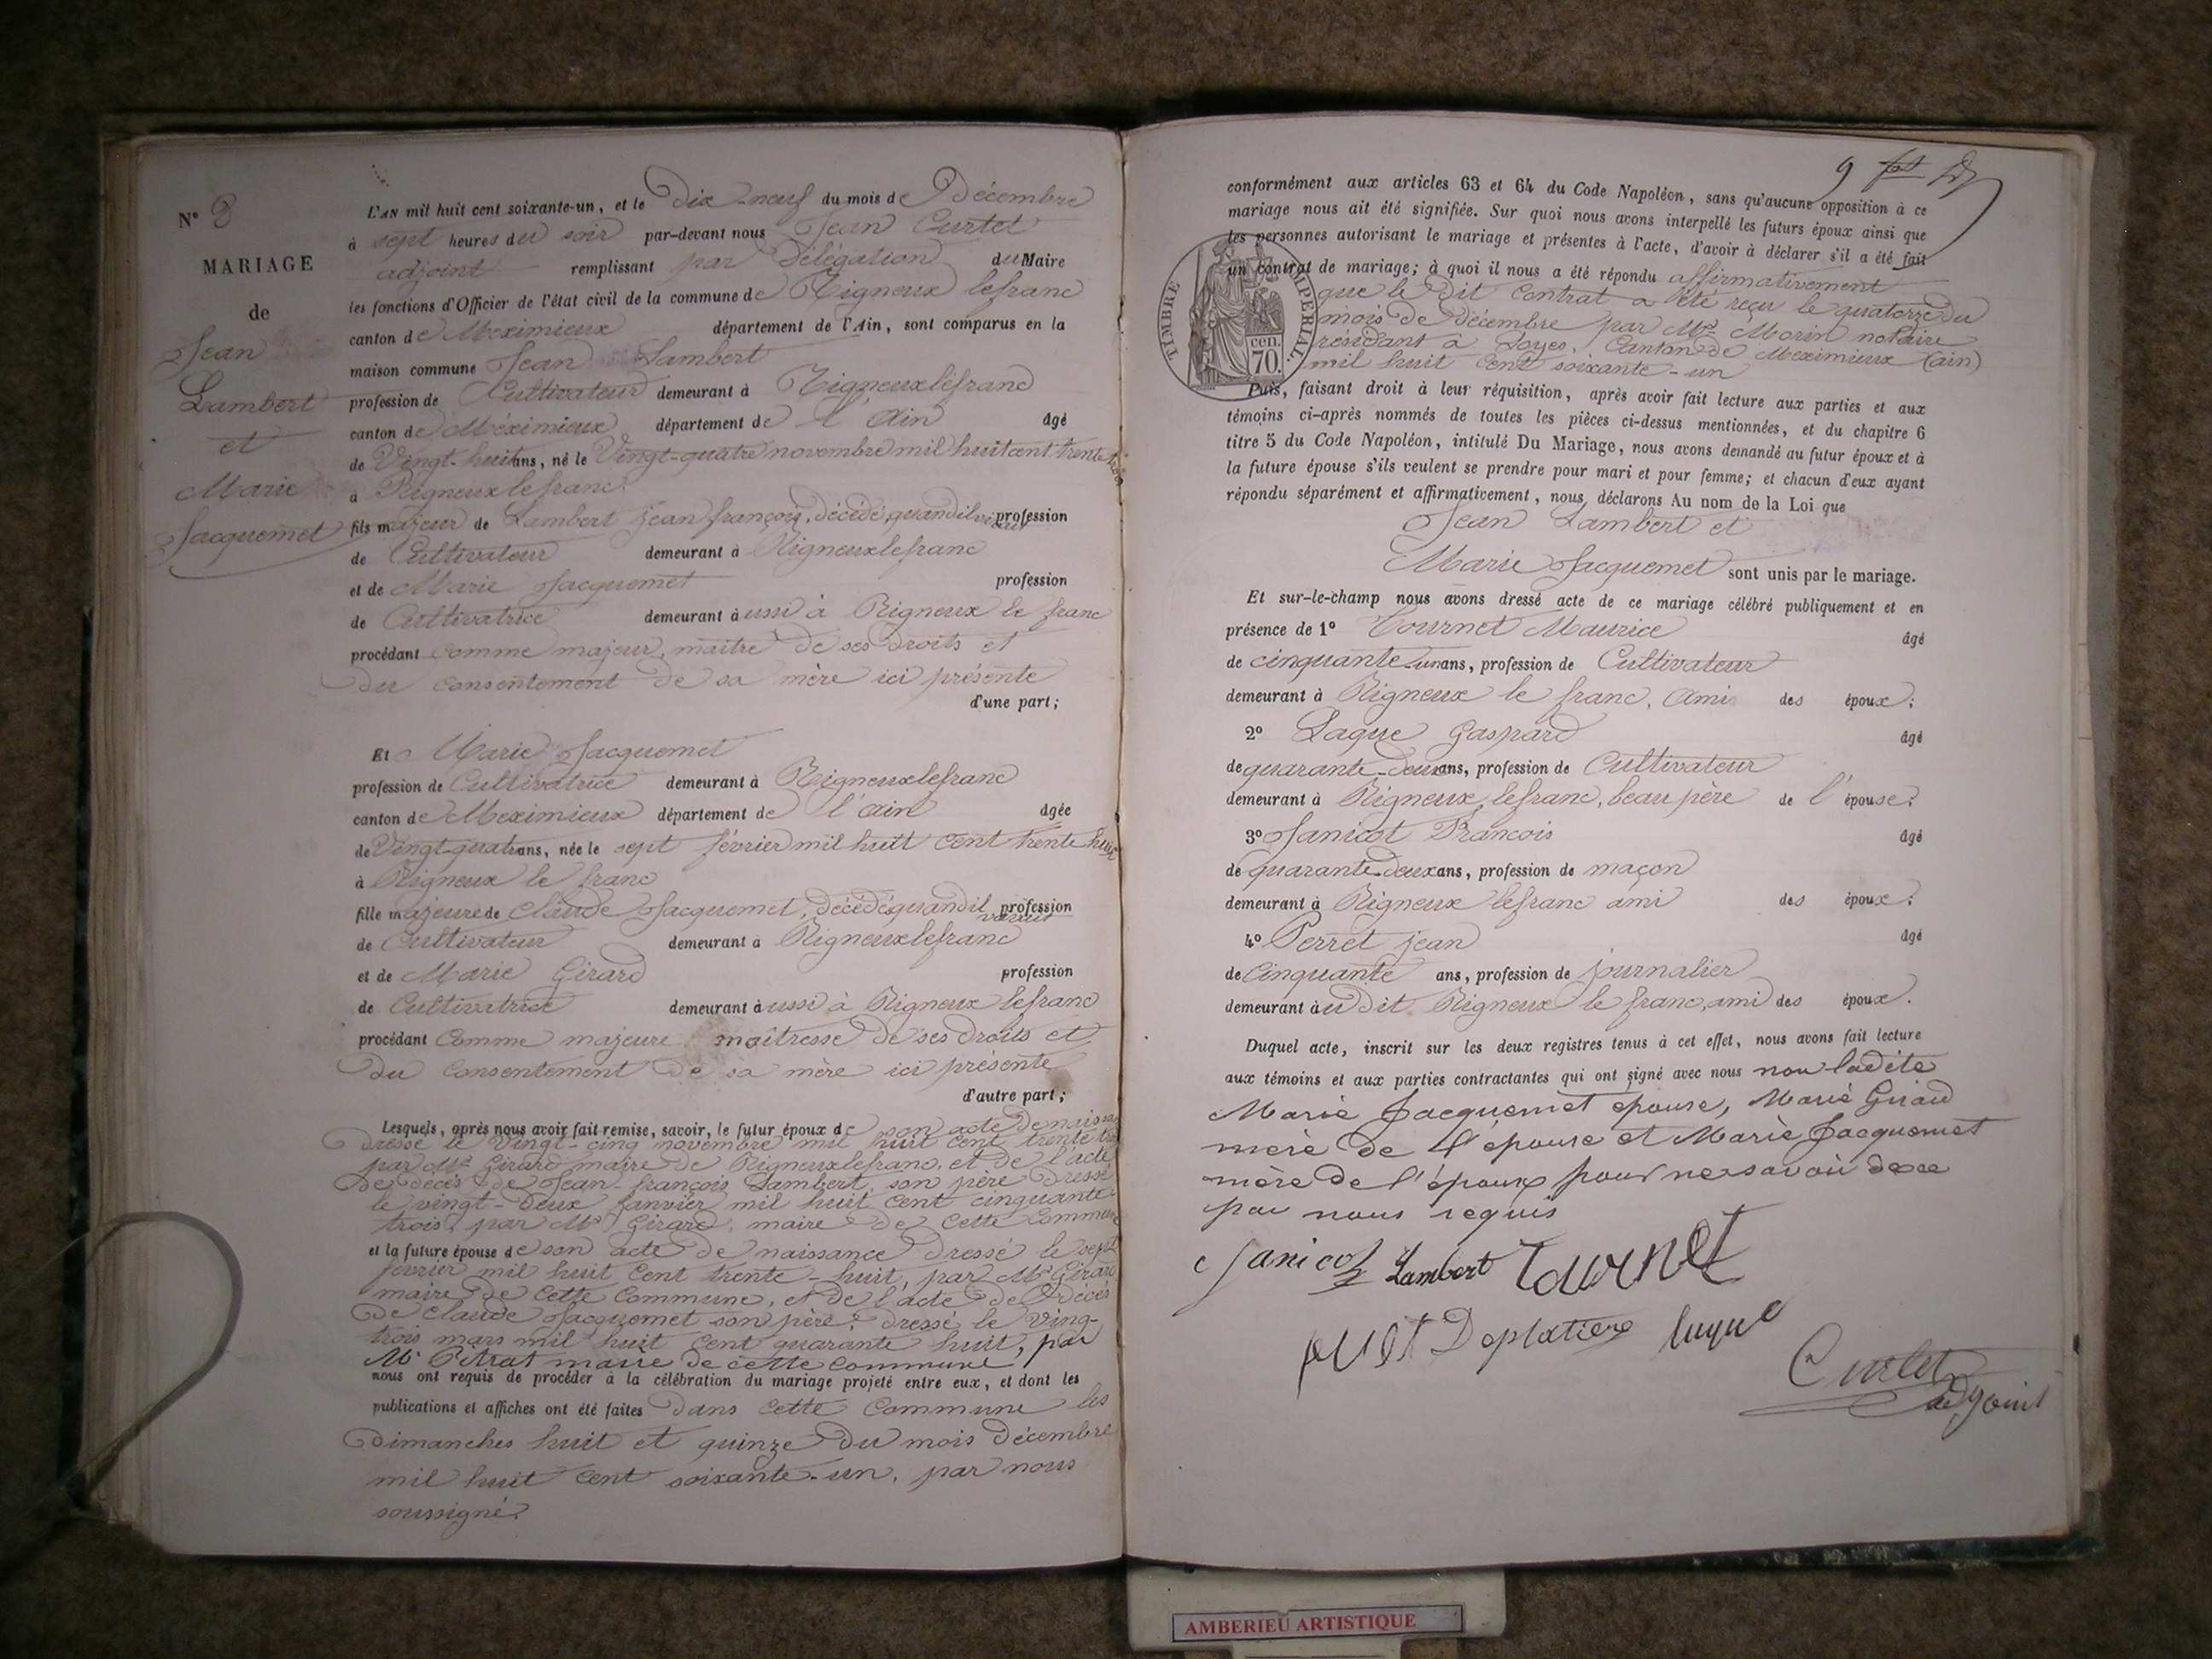 N° 8
MARIAGE
de
Jean
Lambert
et
Marie
Jacquemet
L'AN mil huit cent soixante-un, et le Dix neuf du mois de Décembre
à sept heures du soir par-devant nous Jean Curtet
adjoint remplissant par Délégation du Maire
les fonctions d'Officier de l'état civil de la commune de Rigneux lefranc
canton de Meximieux département de l'Ain, sont comparus en la
maison commune Jean Lambert
profession de Cultivateur demeurant à Rigneuxlefranc
canton de Méximieux département de l'Ain âgé
de Vingt-huit ans, né le Vingt-quatre novembre mil huit cent trente trois
à Rigneux le franc
fils majeur de Lambert jean françois, décédé, quand il vivait profession
de Cultivateur demeurant à Rigneuxlefranc
et de Marie Jacquemet profession
de Cultivatrice demeurant à ussi à Rigneux le franc
procédant comme majeur, maître de ses droits et
du consentement de sa mère ici présente
d'une part;
Et Marie Jacquemet
profession de Cultivatrice demeurant à Rigneuxlefranc
canton de Meximieux département de l'ain âgée
de Vingt-quatre ans, née le sept février mil huit cent trente huit
à Rigneux le franc
fille majeure de Claude Jacquemet, décédé, quand il vivait profession
de Cultivateur demeurant à Rigneuxlefranc
et de Marie Girard profession
de Cultivatrice demeurant à ussi à Rigneux lefranc
procédant comme majeure maîtresse de ses droits et
du consentement de sa mère ici présente
d'autre part;
Lesquels, après nous avoir fait remise, savoir, le futur époux de son acte de naissance
dressé le vingt-cinq novembre mil huit cent trente trois
par Mr Girard maire de Rigneuxlefranc, et de l'acte
de décès de Jean-françois Lambert, son père dressé
le vingt-deux Janvier mil huit cent cinquante
trois, par Mr Girard, maire de cette Commune
et la future épouse de son acte de naissance dressé le sept
février mil huit cent trente-huit, par Mr Girard
maire de cette Commune, et de l'acte de décès
de Claude Jacquemet son père, dressé le ving-
trois mars mil huit cent quarante huit, par
Mr Pitrat maire de cette commune
nous ont requis de procéder à la célébration du mariage projeté entre eux, et dont les
publications et affiches ont été faites dans cette Commune les
Dimanches huit et quinze du mois Décembre
mil huit cent soixante-un, par nous
soussigné.
9
conformément aux articles 63 et 64 du Code Napoléon, sans qu'aucune opposition à ce
mariage nous ait été signifiée. Sur quoi nous avons interpellé les futurs époux ainsi que
les personnes autorisant le mariage et présentes à l'acte, d'avoir à déclarer s'il a été fait
un contrat de mariage; à quoi il nous a été répondu affirmativement
que le dit Contrat a été reçu le quatorze du
mois de Décembre par Me Morin notaire
résidant à Loyes, Canton de Meximieux (ain)
mil huit cent soixante-un
TIMBRE IMPERIAL.
cen.
70.
Puis, faisant droit à leur réquisition, après avoir fait lecture aux parties et aux
témoins ci-après nommés de toutes les pièces ci-dessus mentionnées, et du chapitre 6
titre 5 du Code Napoléon, intitulé Du Mariage, nous avons demandé au futur époux et à
la future épouse s'ils veulent se prendre pour mari et pour femme; et chacun d'eux ayant
répondu séparément et affirmativement, nous déclarons Au nom de la Loi que
Jean Lambert et
Marie Jacquemet sont unis par le mariage.
Et sur-le-champ nous avons dressé acte de ce mariage célébré publiquement et en
présence de 1° Tournet Maurice âgé
de cinquante-un ans, profession de Cultivateur
demeurant à Rigneux le franc, Ami des époux;
2° Laque Gaspard âgé
de quarante-deux ans, profession de Cultivateur
demeurant à Rigneux lefranc, beau père de l'épouse;
3° Janicot Francois âgé
de quarante deux ans, profession de maçon
demeurant à Rigneux lefranc ami des époux;
4° Perret jean âgé
de Cinquante ans, profession de journalier
demeurant à u dit Rigneux le franc, ami des époux.
Duquel acte, inscrit sur les deux registres tenus à cet effet, nous avons fait lecture
aux témoins et aux parties contractantes qui ont signé avec nous non ladite
Marie Jacquemet épouse, Marie Girard
mère de l'épouse et Marie Jacquemet
mère de l'époux pour ne savoir de ce
par nous requis
Janicot Lambert Tournet
peret Deplatiere luque
Curtet
adjoint
AMBERIEU ARTISTIQUE